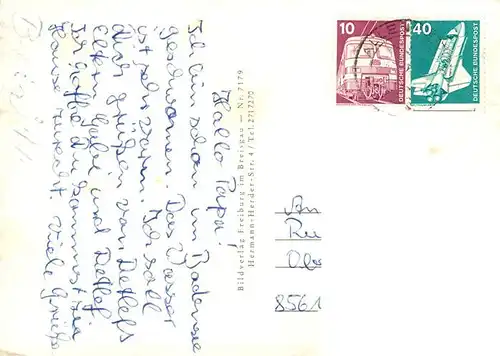 Hallo Papa!
Ich bin schon im Bodensee
geschwommen. Das Wasser
ist sehr warm. Ich soll
dich grüßen von Detlefs
Eltern, und Detlef
Ich hoffe du kommst
Hause zurück. Viele Grüße
Bildverlag Freiburg im Breisgau — Nr. 7179
Hermann-Herder-Str. 4 / Tel. 2717270
10
DEUTSCHE BUNDESPOST
40
DEUTSCHE BUNDESPOST
An
8561